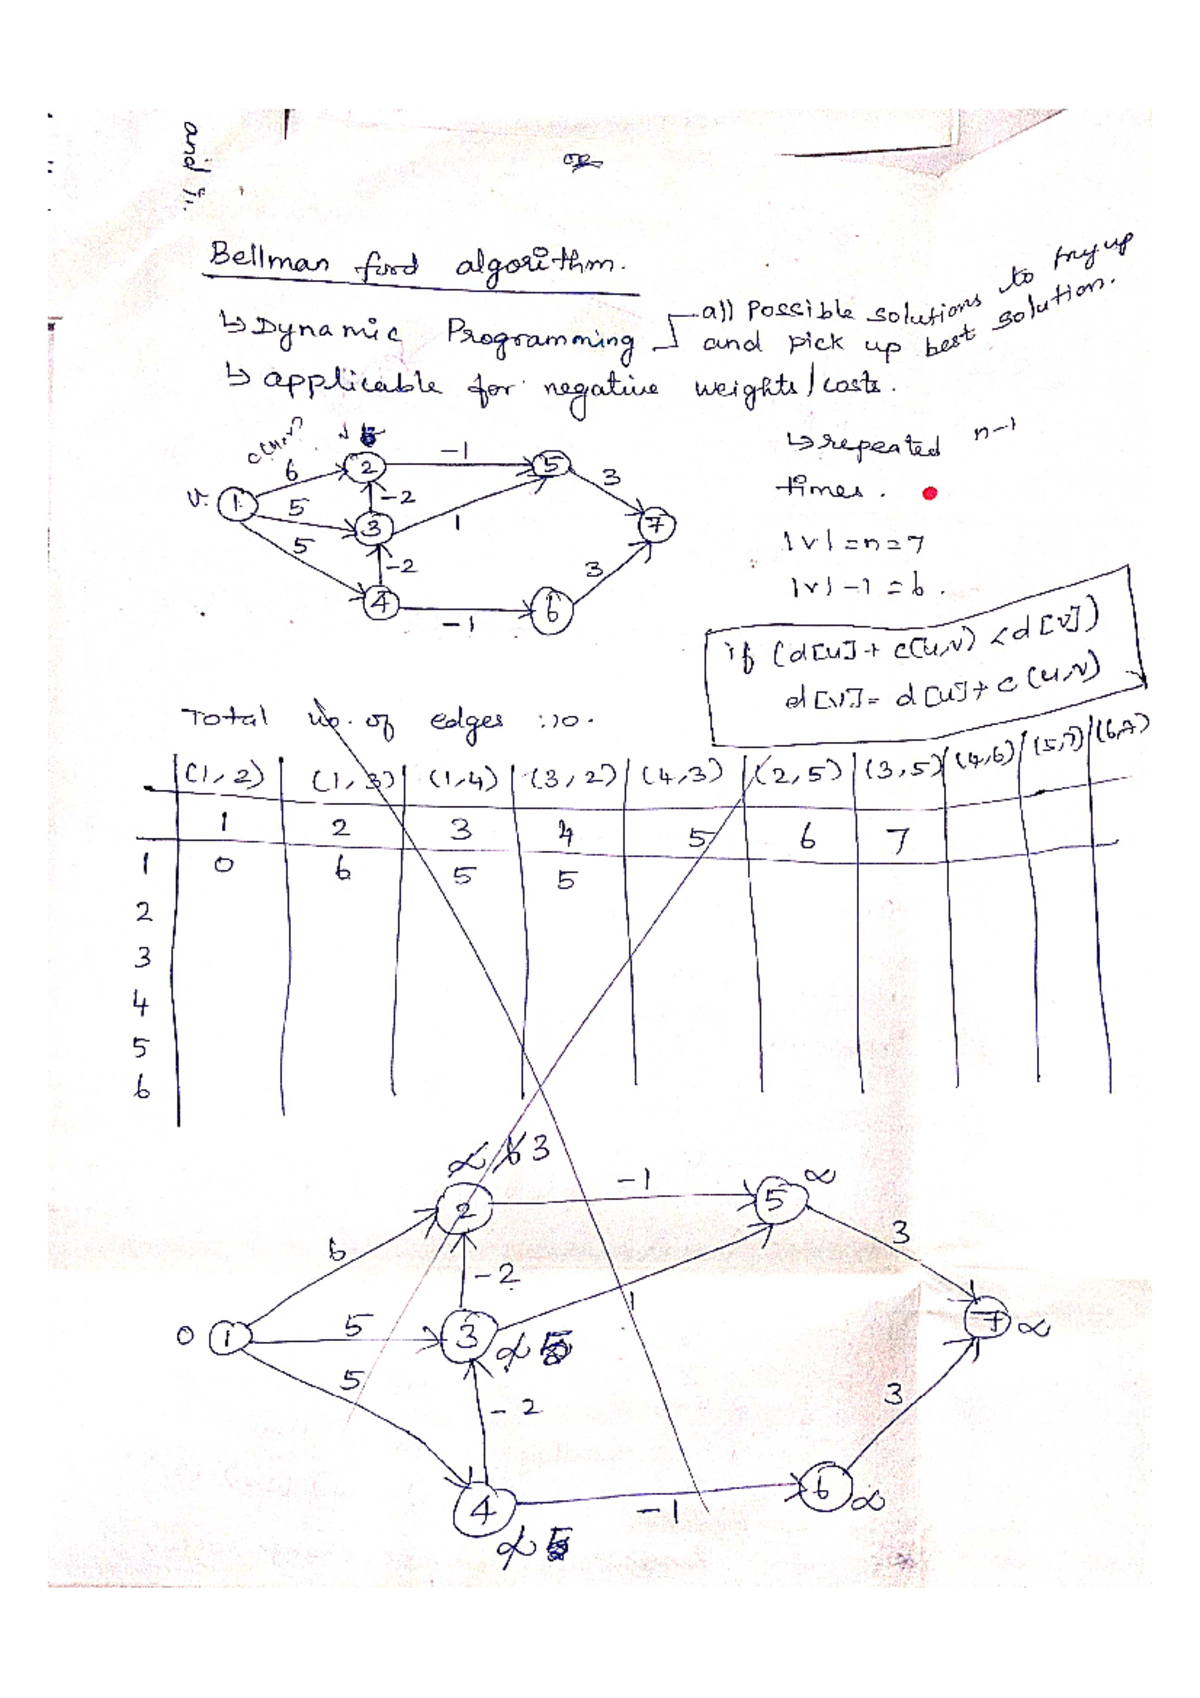 and
Bellman ford algorithm.
↳ Dynamic Programming all Possible solutions to try up
and pick up best solution.
↳ applicable for negative weights/costs.
↳ repeated n-1
times.
|V| = n = 7
|V| - 1 = 6.
c(u,v)
v. 1 6 2 -1 5 3
5 -2 3 1 7
5 -2 3
4 -1 6
if (d[u] + c(u,v) < d[v])
d[v] = d[u] + c(u,v)
Total no. of edges :10.
(1, 2) (1, 3) (1,4) (3, 2) (4,3) (2,5) (3,5) (4,6) (5,7) (6,7)
1 2 3 4 5 6 7
1 0 6 5 5
2
3
4
5
6
∝ 6 3
2 -1 5 ∝
6 3
-2
0 1 5 3 ∝ 5 1 7 ∝
5 -2 3
4 -1 6 ∝
∝ 5